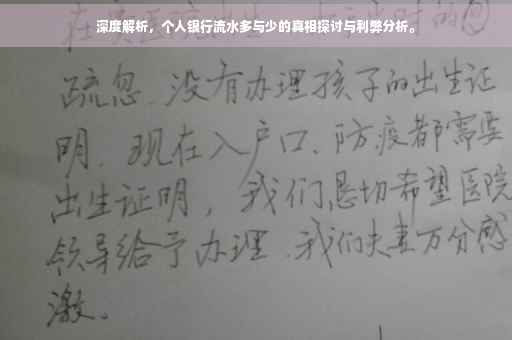 深度解析，个人银行流水多与少的真相探讨与利弊分析。
疏忽、没有办理孩子的出生证
明、现在入户口、防疫都需要
出生证明，我们恳切希望医院
领导给予办理、我们夫妻万分感
激。